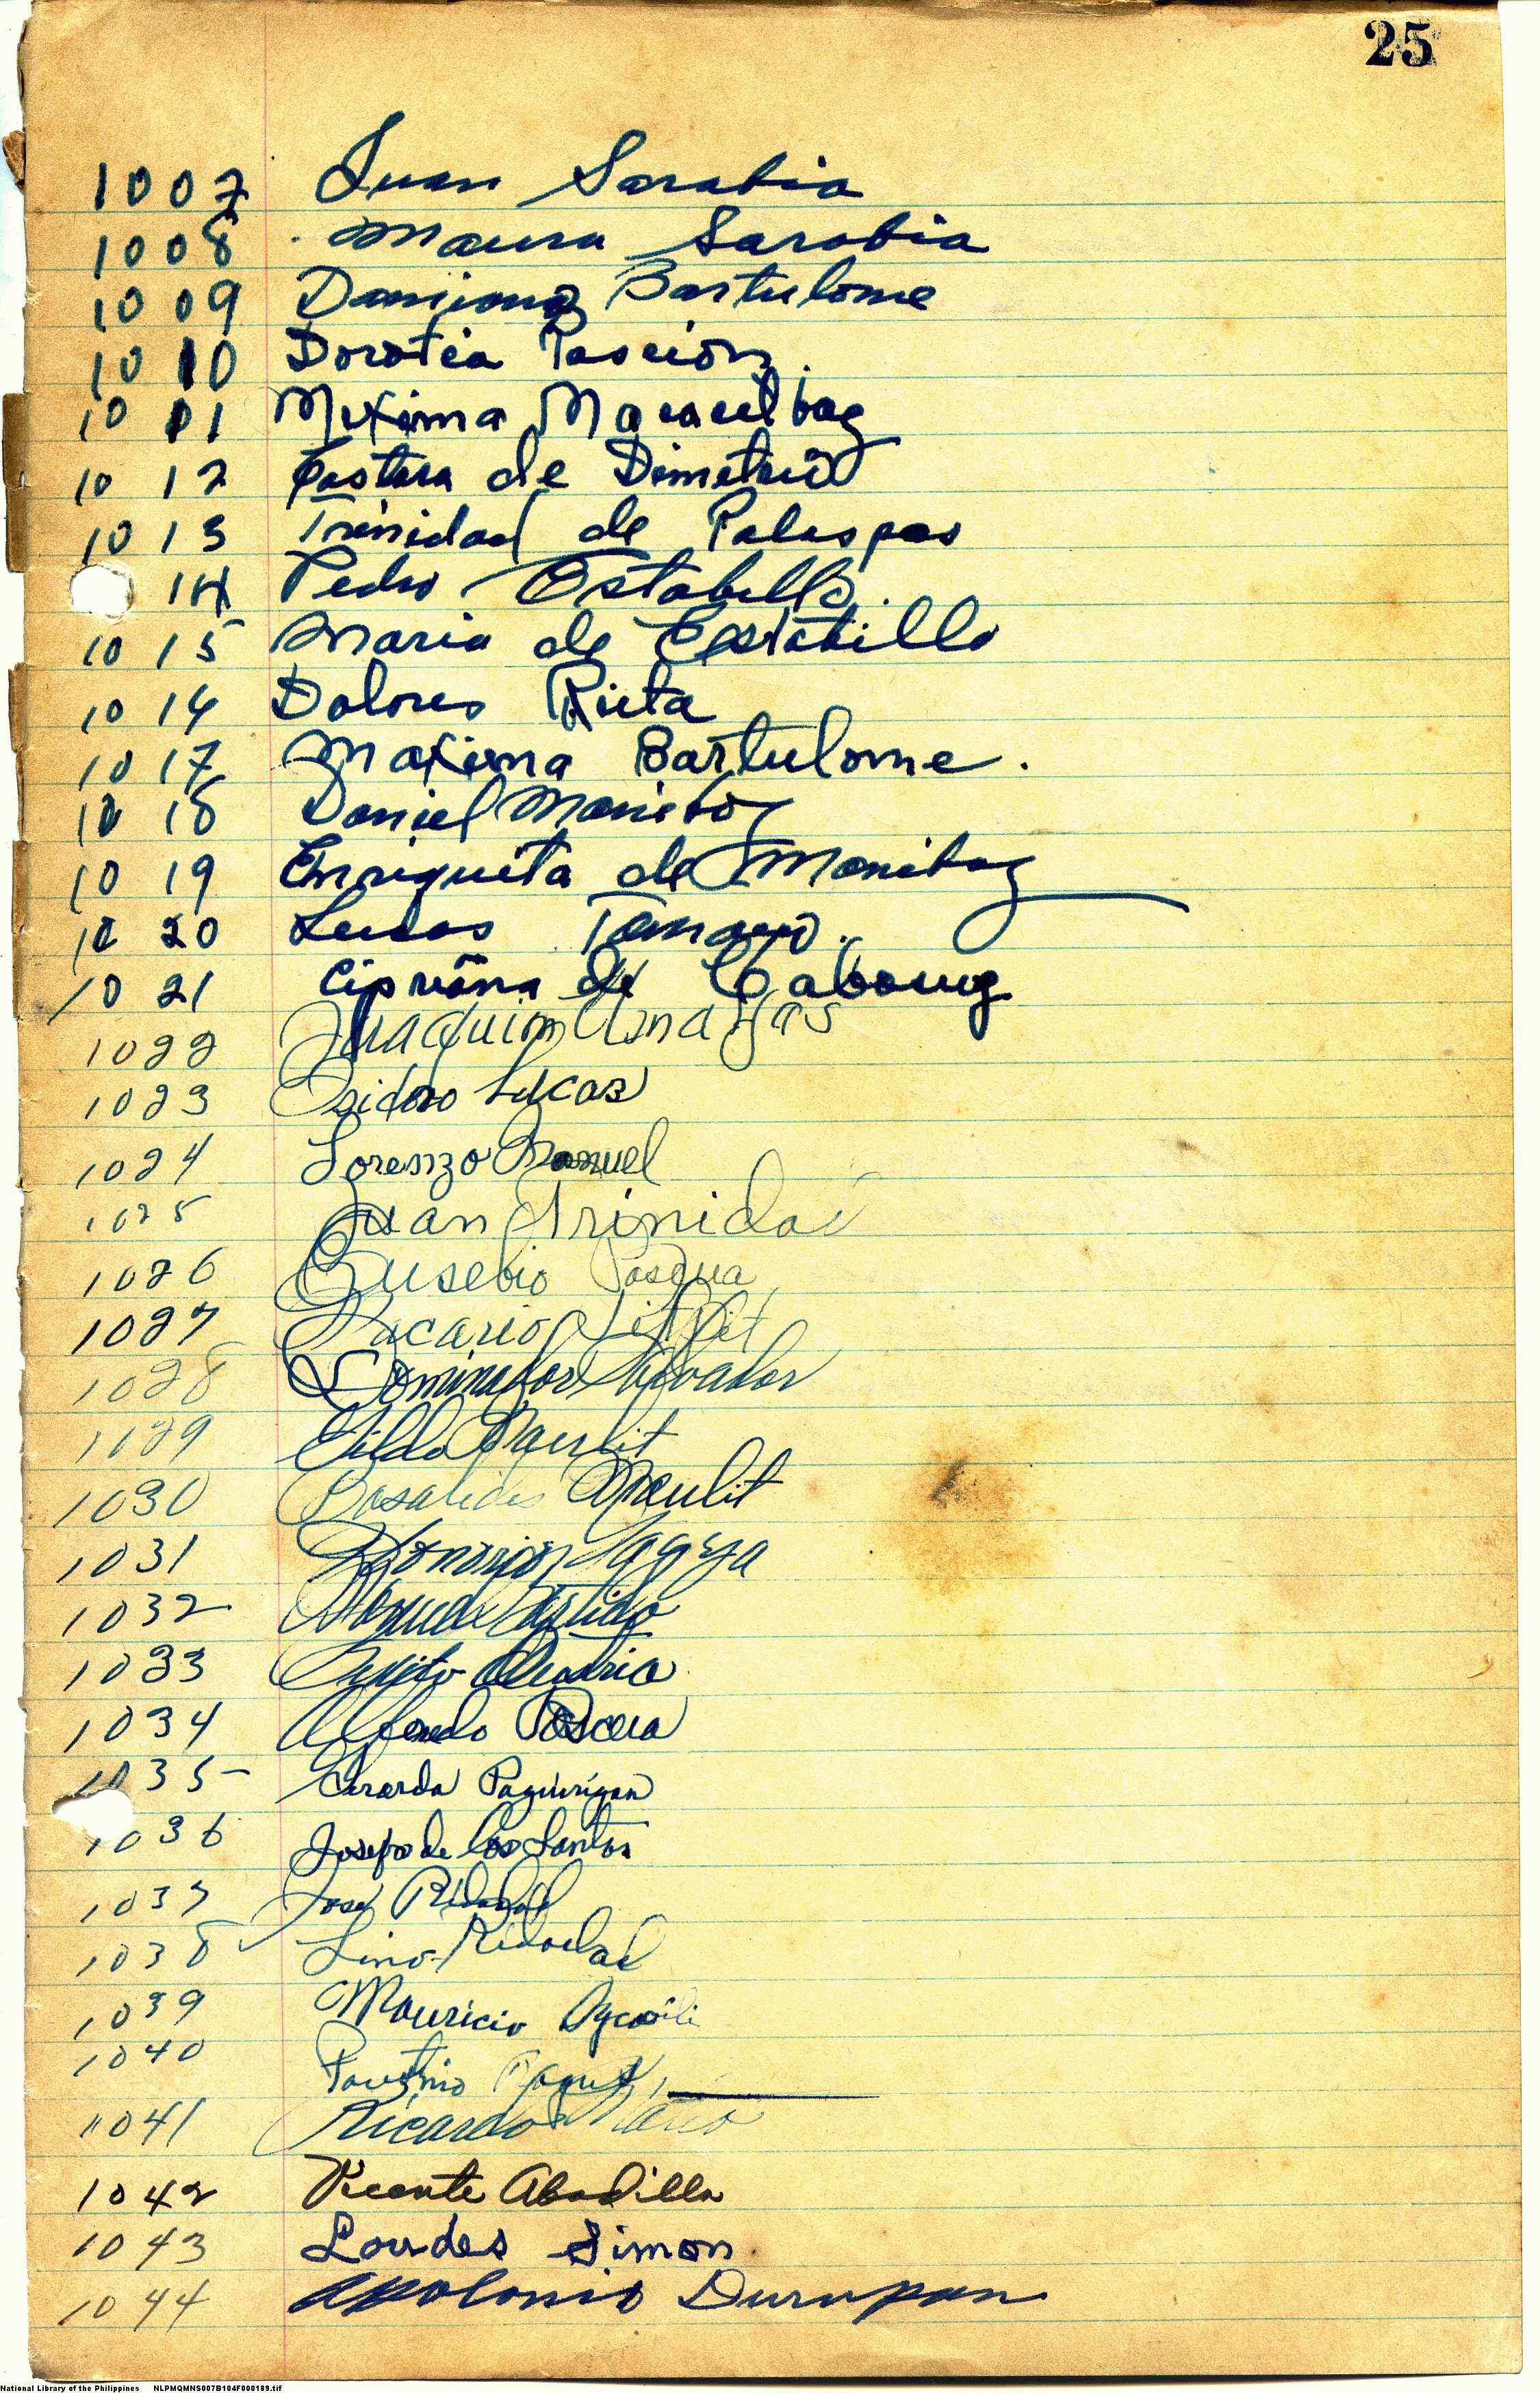 25
1007 Juan Sarabia
1008 Maura Sarabia
1009 Damiana Bartulome
1010 Dorotea Pascion
1011 Mixima
1012 Pastora de Dimetrio
1013 Trinidad de Palaspas
14 Pedro Estabillo.
1015 Maria de Estabillo
1016 Dolores Rieta
1017 Maxima Bartulome.
1018 Daniel Maniboy
1019 Enriqueta de Maniboy
1020 Lucas Tamayo.
1021 Cipriana de Cabauug
1022 Juaquim Amagas
1023 Isidoro Lucas
1024 Lorenzo Manuel
1025 Juan Trinidad
1026 Eusebio Pascua
1027 Macario
1028 Dominador Salvador
1029
1030 Maulit
1031 Honorio
1032 Manuel
1033
1034 Alfredo Pascua
1035 Gerarda Paguirigan
1036 Josefa de los Santos
1037 Jose Ridadad
1038 Lino Ridadad
1039 Mauricio Agcaoili
1040 Faustino
1041 Ricardo
1042 Vicente Abadilla
1043 Lourdes Simon
1044 Apolonio Durupan
National Library of the Philippines NLPMQMNS007B104F000189.tif